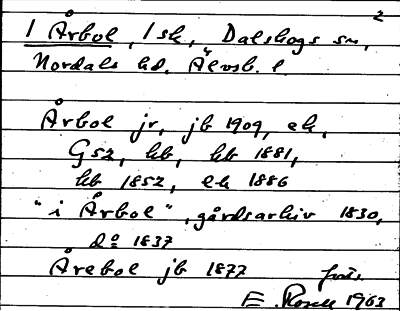 2
1 Årbol, 1 sk, Dalskogs sn,
Nordals hd. Älvsb. l
Årbol jr, jb 1909, ek,
Gs2, hb, hb 1881,
hb 1852, ek 1886
"i Årbol", gårdsarkiv 1830,
do 1837
Årebol jb 1877
E. 1963